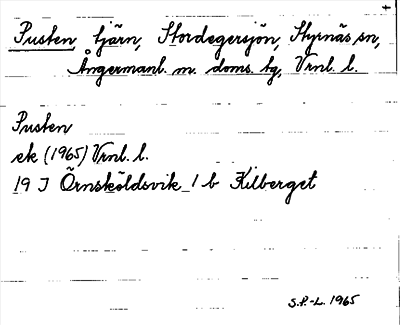 Pusten, tjärn, Stordegersjön, Styrnäs sn,
Ångermanl. m. doms. tg, Vrnl. l.
Pusten
ek (1965) Vrnl. l.
19 J Örnsköldsvik 1 b Kilberget
S.P.-L. 1965